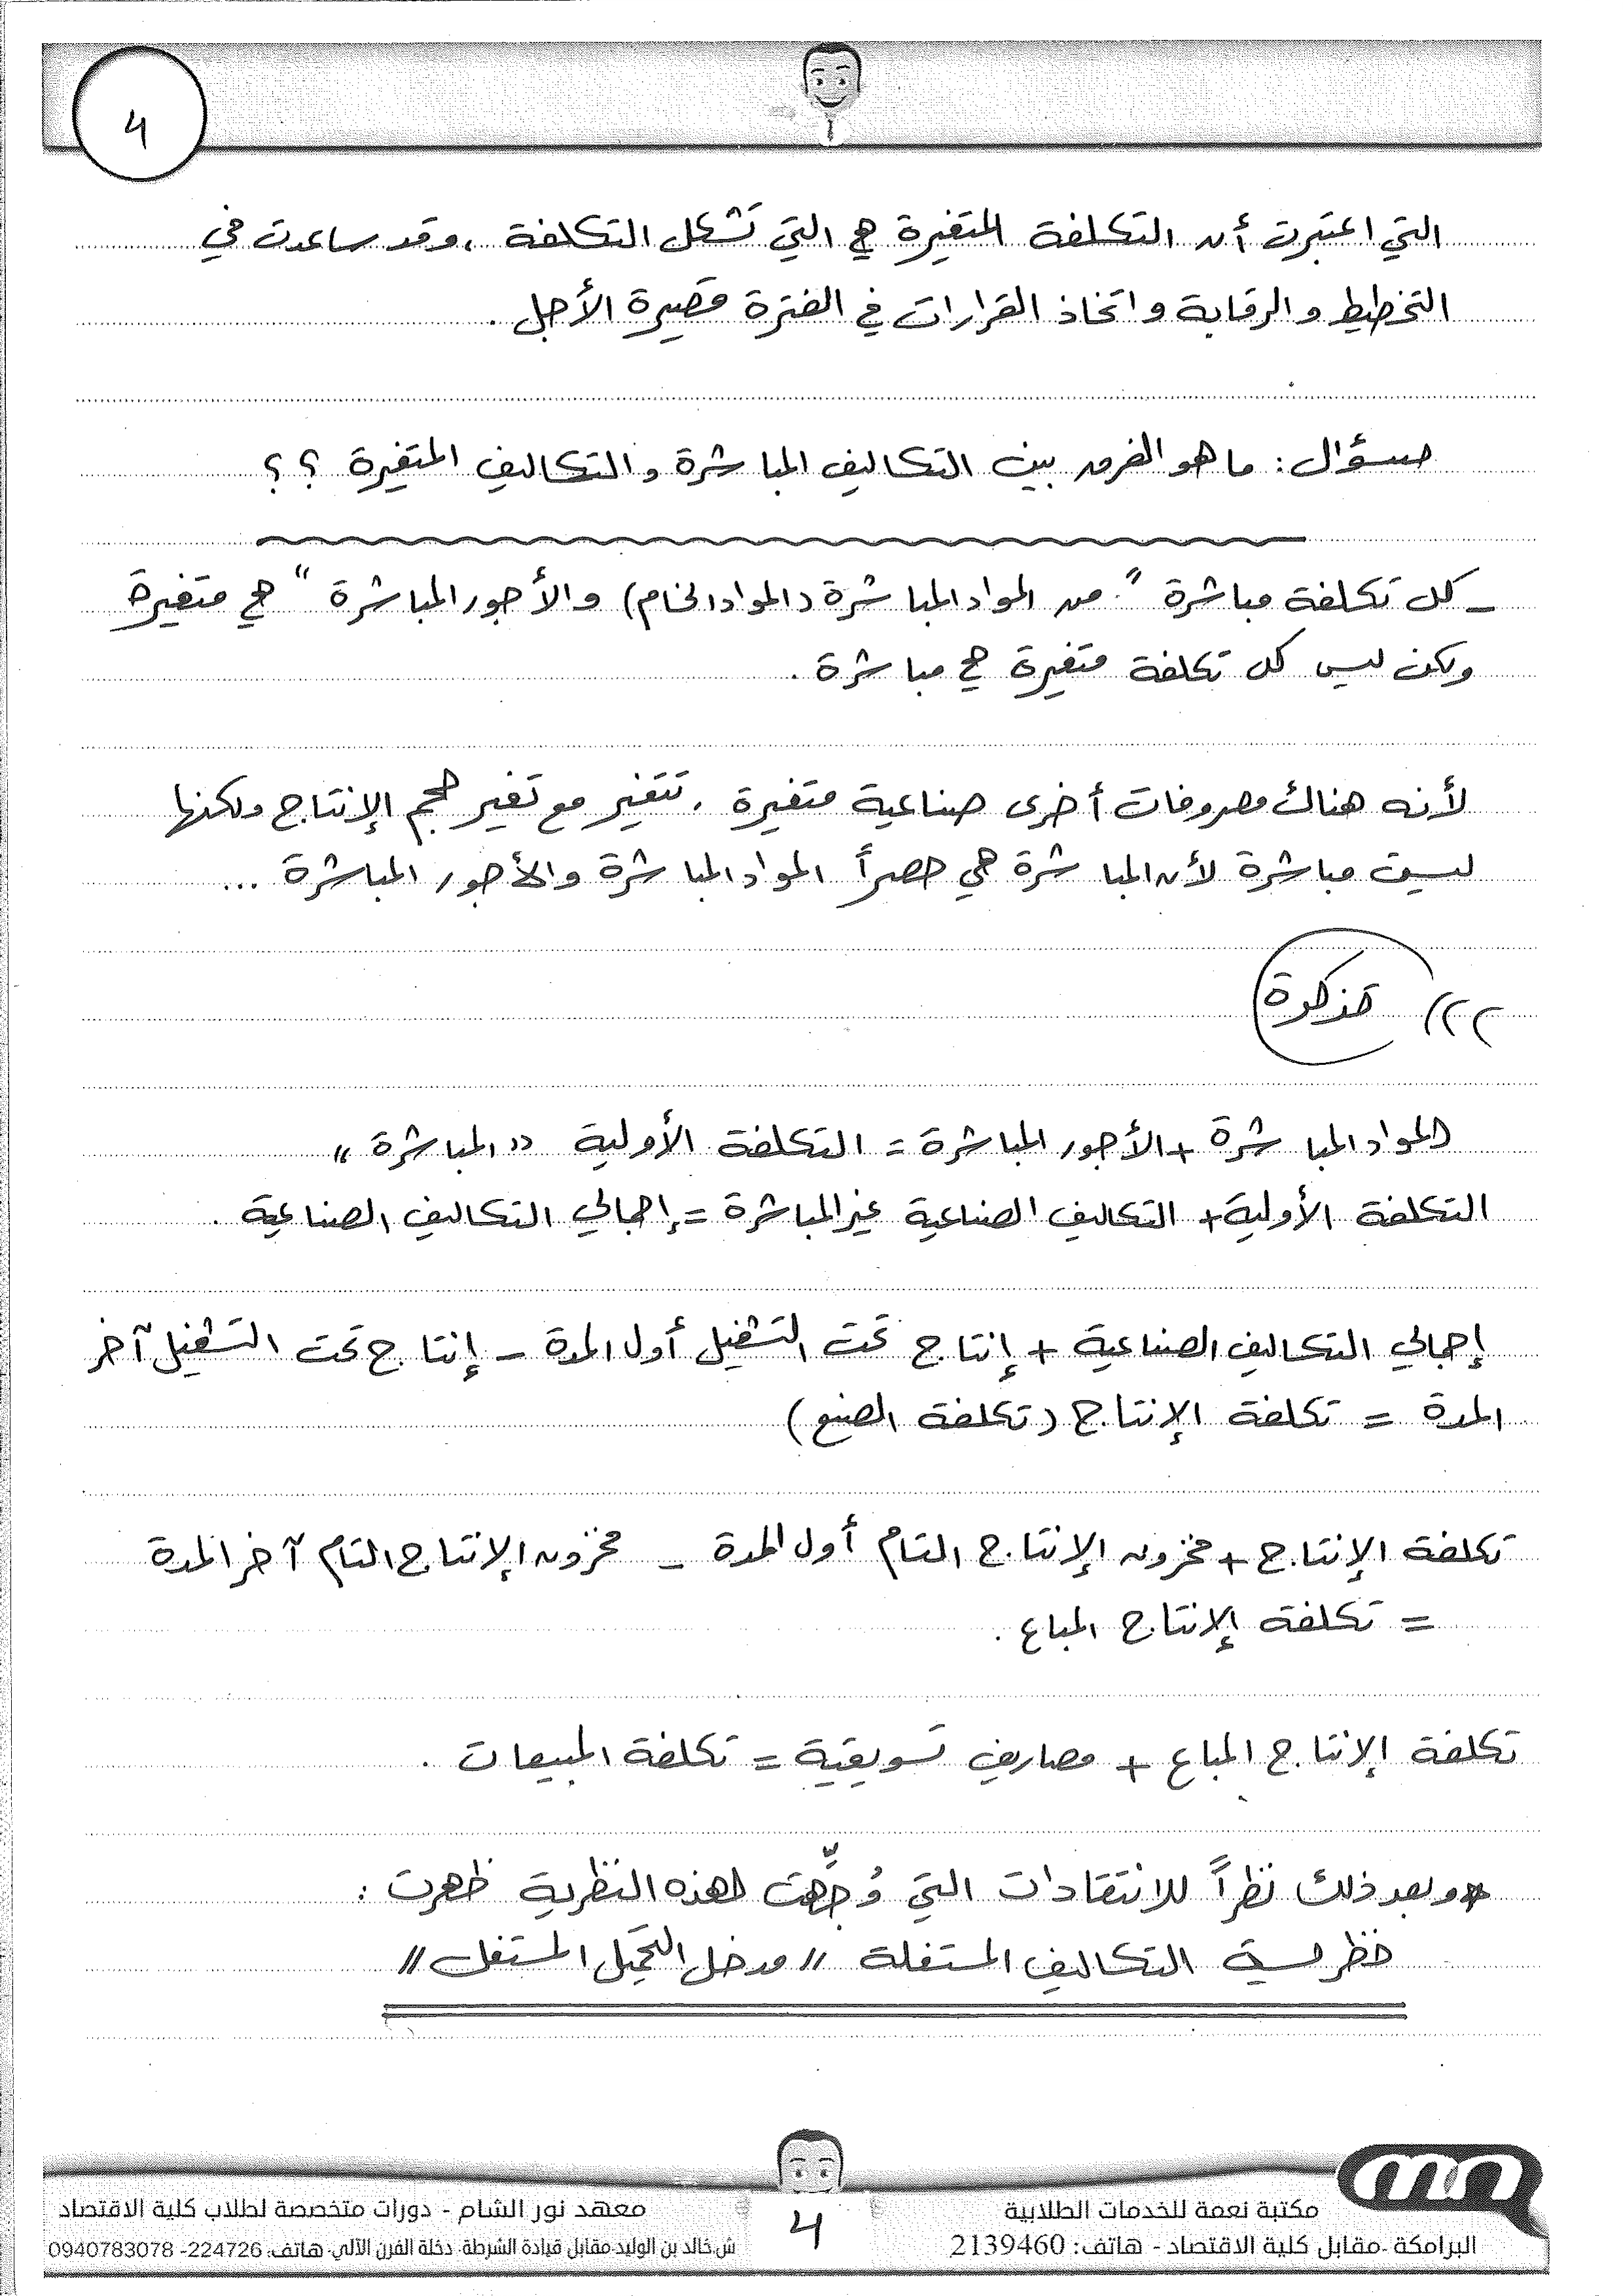 4
التي اعتبرت أن التكلفة المتغيرة هي التي تشكل التكلفة ، وقد ساعدت في
التخطيط والرقابة واتخاذ القرارات في الفترة قصيرة الأجل .
سؤال : ما هو الفرق بين التكاليف المباشرة والتكاليف المتغيرة ؟؟
- كل تكلفة مباشرة " من المواد المباشرة (المواد الخام) والأجور المباشرة " هي متغيرة
ولكن ليس كل تكلفة متغيرة هي مباشرة .
لأنه هناك مصروفات أخرى صناعية متغيرة ، تتغير مع تغير حجم الإنتاج ولكنها
ليست مباشرة لأن المباشرة هي حصراً المواد المباشرة والأجور المباشرة ...
تذكرة
المواد المباشرة + الأجور المباشرة = التكلفة الأولية " المباشرة "
التكلفة الأولية + التكاليف الصناعية غير المباشرة = إجمالي التكاليف الصناعية .
إجمالي التكاليف الصناعية + إنتاج تحت التشغيل أول المدة - إنتاج تحت التشغيل آخر
المدة = تكلفة الإنتاج (تكلفة الصنع)
تكلفة الإنتاج + مخزون الإنتاج التام أول المدة - مخزون الإنتاج التام آخر المدة
= تكلفة الإنتاج المباع .
تكلفة الإنتاج المباع + مصاريف تسويقية = تكلفة المبيعات .
* وبعد ذلك نظراً للانتقادات التي وُجِّهت لهذه النظرية ظهرت :
نظرية التكاليف المستغلة // مدخل التحميل المستغل //
مكتبة نعمة للخدمات الطلابية
البرامكة -مقابل كلية الاقتصاد - هاتف: 2139460
4
معهد نور الشام - دورات متخصصة لطلاب كلية الاقتصاد
ش.خالد بن الوليد-مقابل قيادة الشرطة- دخلة الفرن الآلي- هاتف: 224726- 0940783078